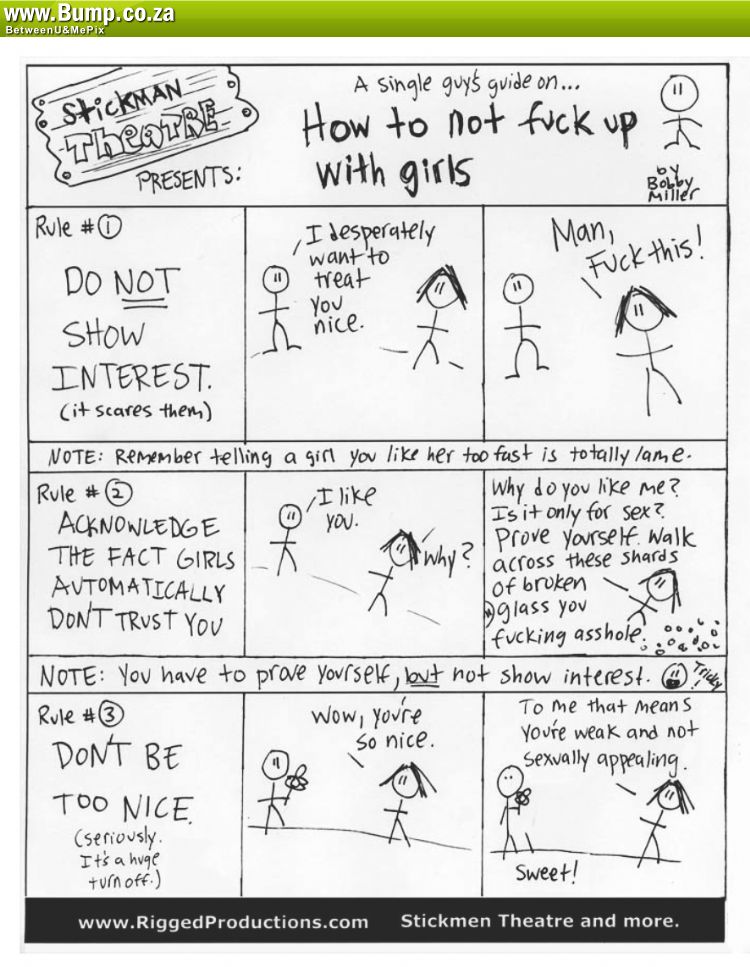 www.Bump.co.za
BetweenU&MePix
STICKMAN
THEATRE
PRESENTS:
A single guy's guide on...
How to not fuck up
with girls
by
Bobby
Miller
Rule #1
DO NOT
SHOW
INTEREST.
(it scares them)
I desperately
want to
treat
you
nice.
Man,
Fuck this!
NOTE: Remember telling a girl you like her too fast is totally lame.
Rule #2
ACKNOWLEDGE
THE FACT GIRLS
AUTOMATICALLY
DON'T TRUST YOU
I like
you.
Why?
Why do you like me?
Is it only for sex?
Prove yourself. Walk
across these shards
of broken
glass you
fucking asshole.
NOTE: You have to prove yourself, but not show interest.
Tricky!
Rule #3
DON'T BE
TOO NICE.
(seriously.
It's a huge
turn off.)
Wow, you're
so nice.
To me that means
you're weak and not
sexually appealing.
Sweet!
www.RiggedProductions.com Stickmen Theatre and more.